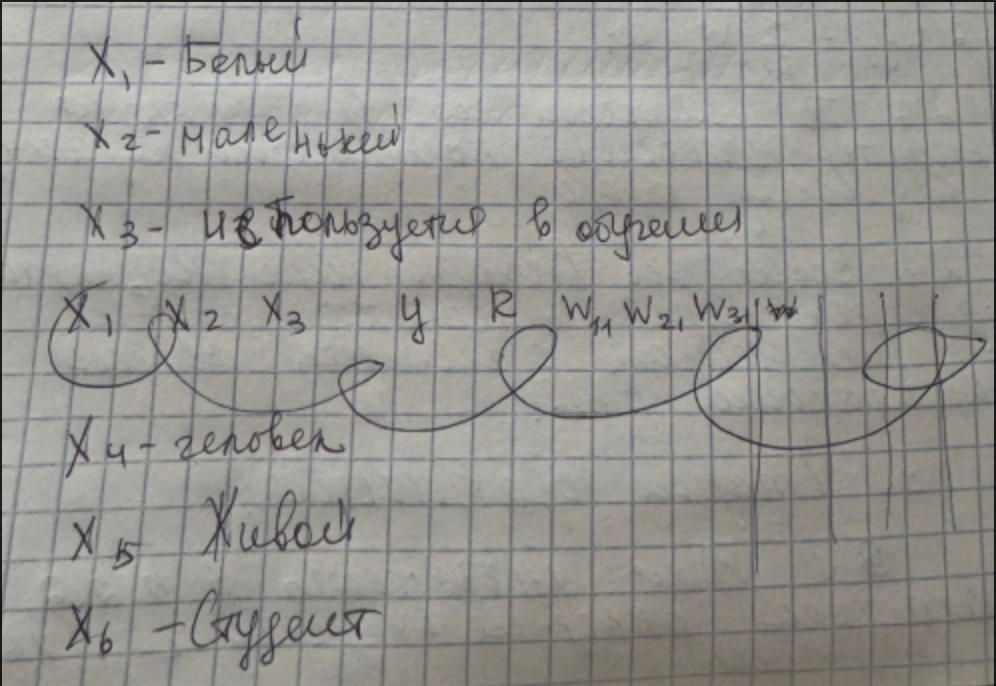 X₁ - Белый
X₂ - маленький
X₃ - используется в обучении
X₁ X₂ X₃ y R W₁, W₂, W₃,
X₄ - человек
X₅ Живой
X₆ - Студент